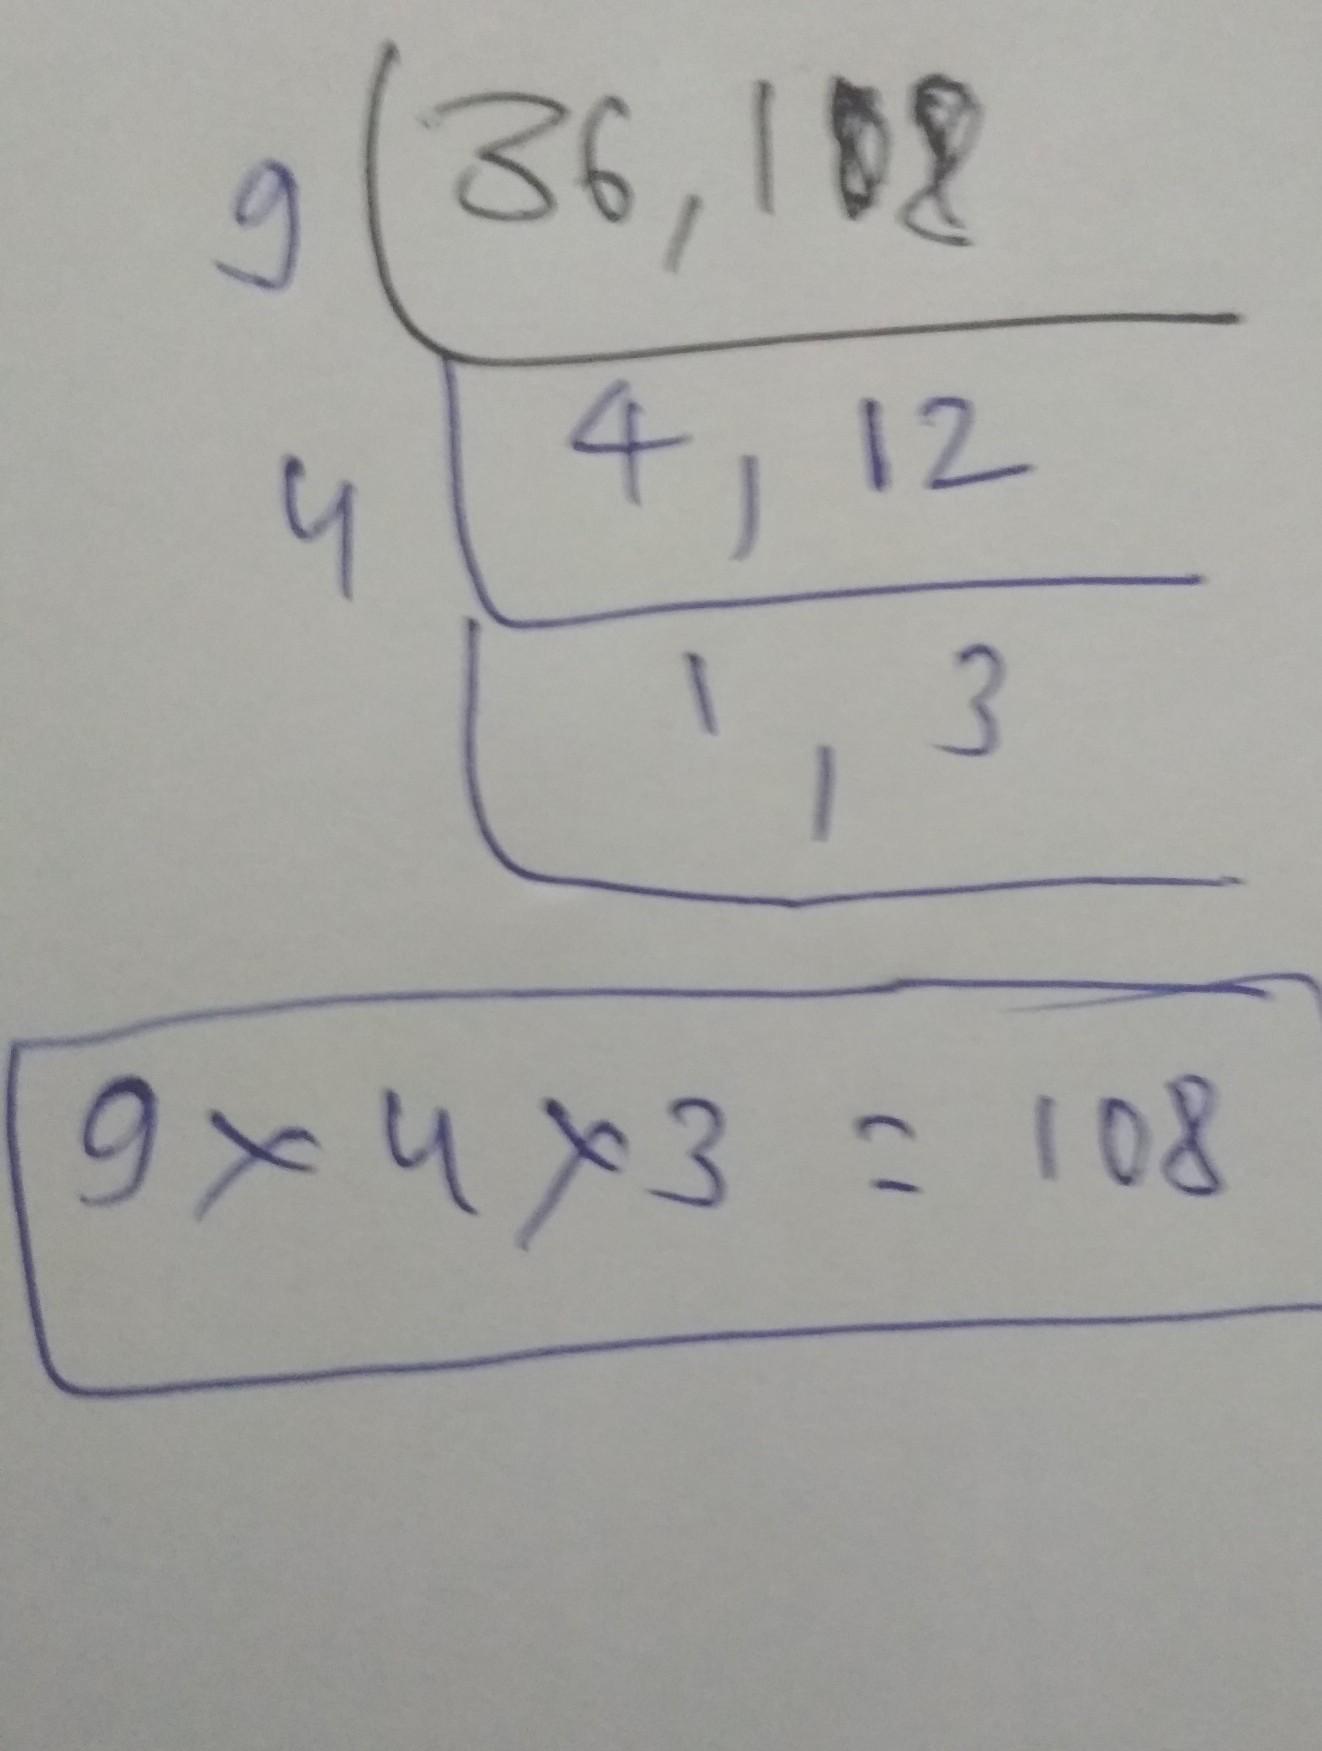 9 36, 108
4 4, 12
1, 3
9 × 4 × 3 = 108